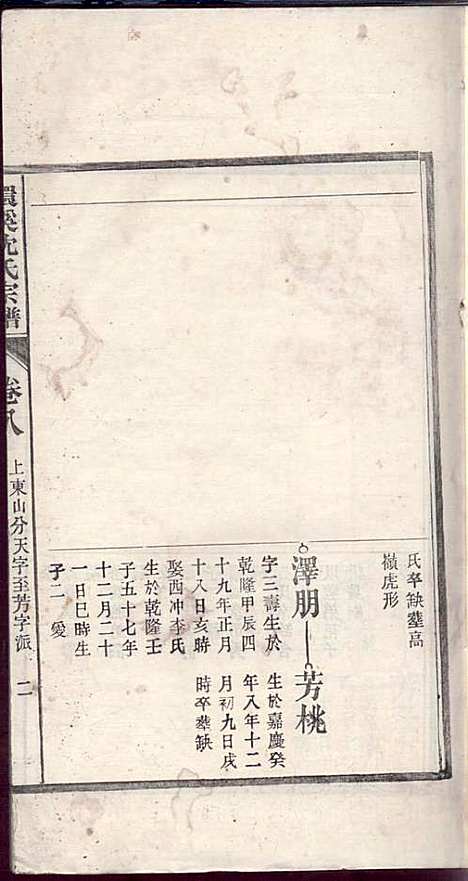 氏卒缺塟高
嶺虎形
澤朋
字三壽生於
乾隆甲辰四
十九年正月
十八日亥時
娶西冲李氏
生於乾隆壬
子五十七年
十二月二十
一日巳時生
子二　愛
芳桃
生於嘉慶癸
年八年十二
月初九日戌
時卒塟缺
環溪沈氏宗譜
卷八
上東山分天字至芳字派
二